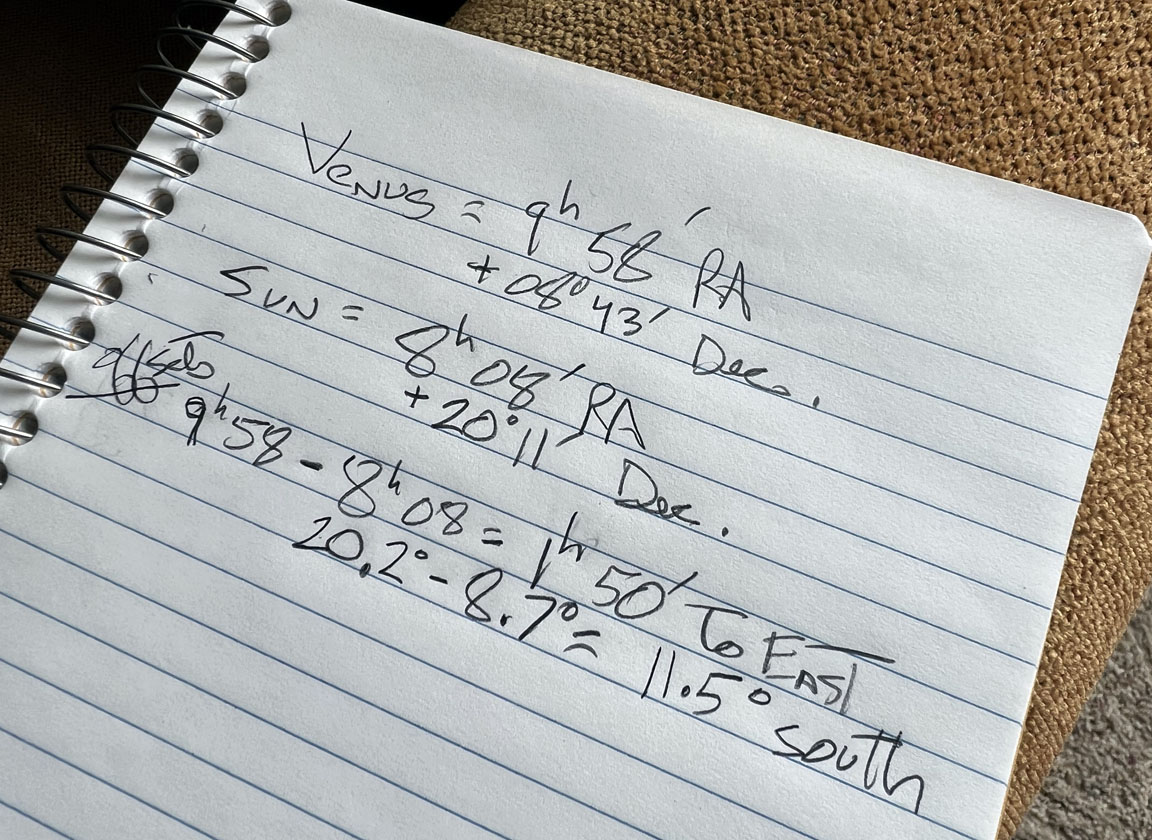 Venus = 9h 58′ RA
+08°43′ Dec.
Sun = 8h 08′ RA
+20°11′ Dec.
offsets
9h 58 - 8h 08 = 1h 50′ To East
20.2° - 8.7° = 11.5° South